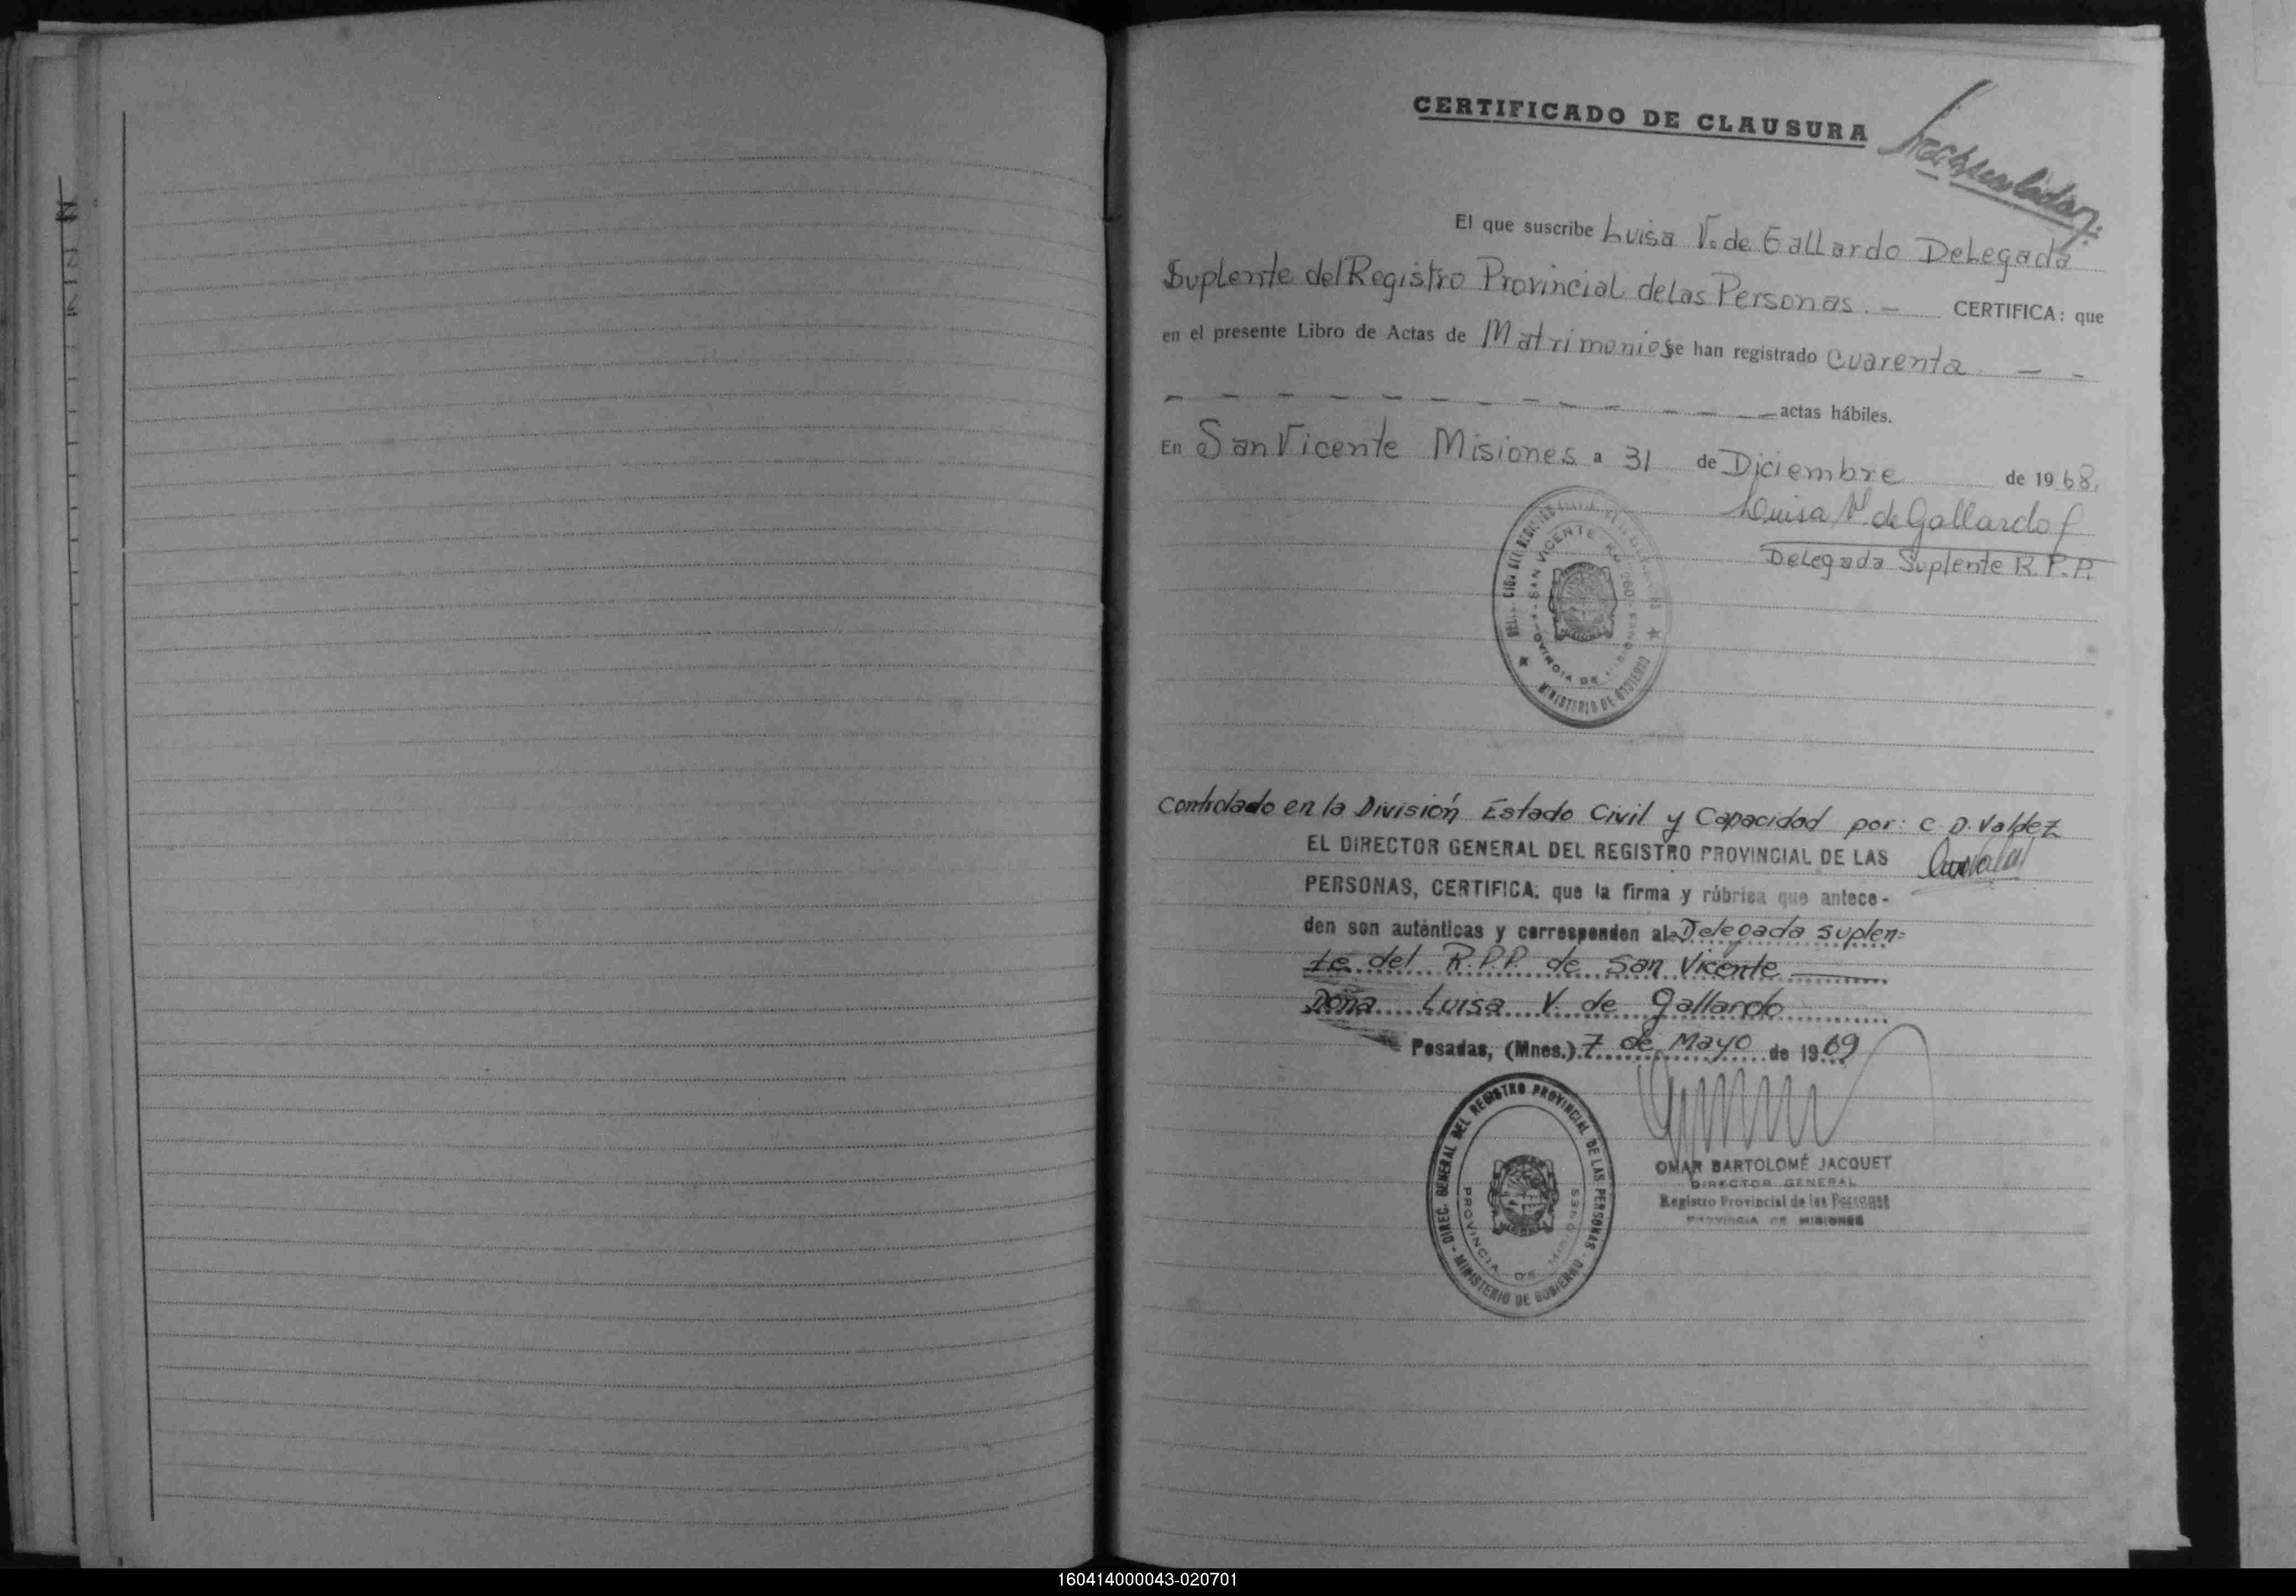 CERTIFICADO DE CLAUSURA
El que suscribe Luisa V. de Gallardo Delegada
Suplente del Registro Provincial de las Personas. — CERTIFICA: que
en el presente Libro de Actas de Matrimonios se han registrado Cuarenta — —
— — — — — — — — — — — — — actas hábiles.
En San Vicente Misiones a 31 de Diciembre de 1968.
Luisa V. de Gallardo
Delegada Suplente R.P.P.
SAN VICENTE
PROVINCIA DE MISIONES
MINISTERIO DE GOBIERNO
Controlado en la División Estado Civil y Capacidad por: C. D. Valdez
EL DIRECTOR GENERAL DEL REGISTRO PROVINCIAL DE LAS
PERSONAS, CERTIFICA: que la firma y rúbrica que antece-
den son auténticas y corresponden a la Delegada Suplen=
te del R.P.P. de San Vicente
Doña Luisa V. de Gallardo
Posadas, (Mnes.) 7 de Mayo de 1969
DIREC. GENERAL DEL REGISTRO PROVINCIAL DE LAS PERSONAS - MINISTERIO DE GOBIERNO -
PROVINCIA DE MISIONES
OMAR BARTOLOMÉ JACQUET
DIRECTOR GENERAL
Registro Provincial de las Personas
PROVINCIA DE MISIONES
160414000043-020701